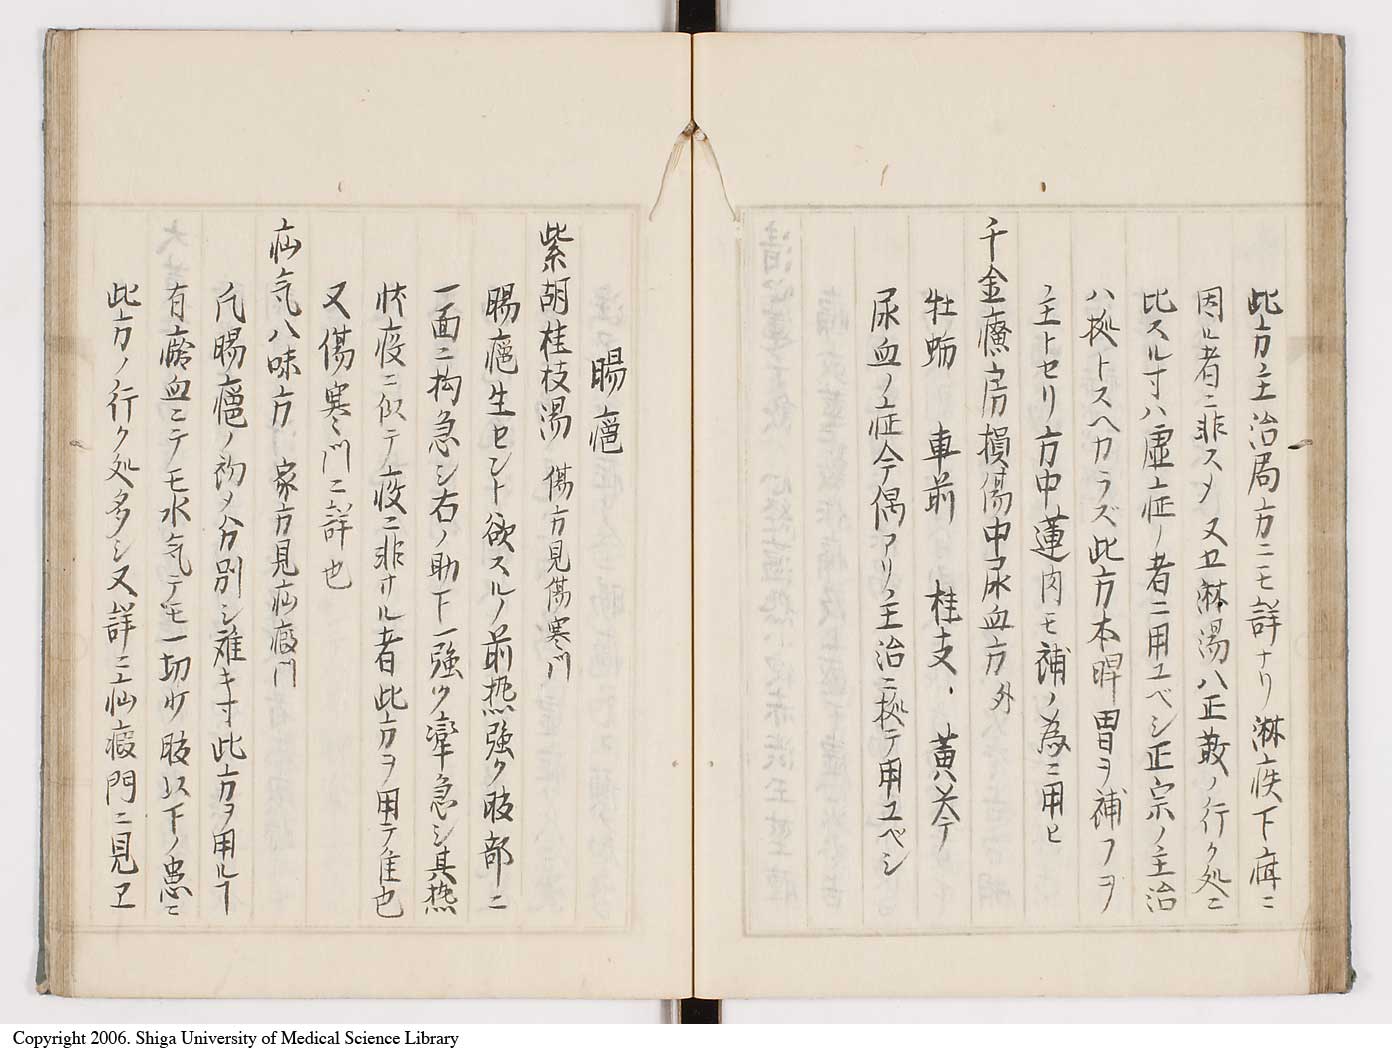 此方主治局方ニモ詳ナリ淋疾下疳ニ
因ル者ニ非スメ又五淋湯八正散ノ行ク処ニ
比スル寸ハ虚症ノ者ニ用ユベシ正宗ノ主治
ハ拠トスヘカラズ此方本脾胃ヲ補フヲ
主トセリ方中蓮肉モ補ノ為ニ用ヒ
千金療房損傷中尿血方 外
牡蛎 車前 桂支 黄芩
尿血ノ症今偶アリ主治ニ拠テ用ユベシ
腸癰
柴胡桂枝湯 傷方見傷寒門
腸癰生セント欲スルノ前热強ク肢部ニ
一面ニ拘急シ右ノ助下一強ク牽急シ其热
状疫ニ似テ疫ニ非サル者此方ヲ用テ佳也
又傷寒門ニ詳也
疝気八味方 家方見疝瘕門
凡腸癰ノ初メ分別シ难キ寸此方ヲ用ルヿ
有瘀血ニテモ水気テモ一切 肢以下ノ患ニ
此方ノ行ク処多シ又詳ニ疝瘕門ニ見ヱ
Copyright 2006. Shiga University of Medical Science Library